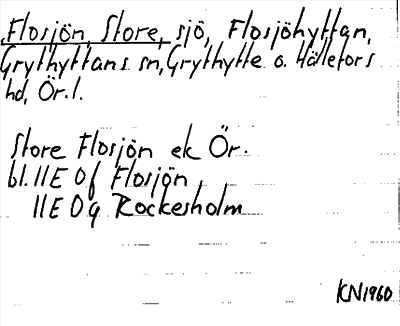 Flosjön, Store, sjö, Flosjöhyttan,
Grythyttans sn, Grythytte o. Hällefors
hd, Ör. l.
Store Flosjön ek Ör.
bl. 11E 0f Flosjön
11E 0g Rockesholm
KN1960